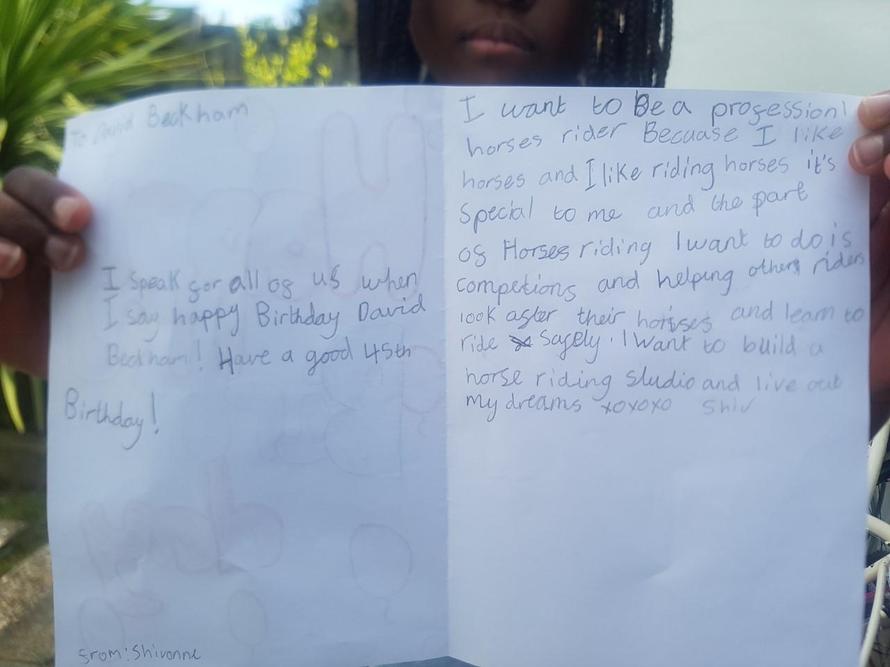 To David Beckham
I speak for all of us when
I say happy Birthday David
Beckham! Have a good 45th
Birthday!
From: Shivonne
I want to Be a professionl
horses rider Becuase I like
horses and I like riding horses it's
Special to me and the part
of Horses riding I want to do is
competions and helping others riders
look after their horses and learn to
ride safely. I want to build a
horse riding studio and live out
my dreams xoxoxo Shiv